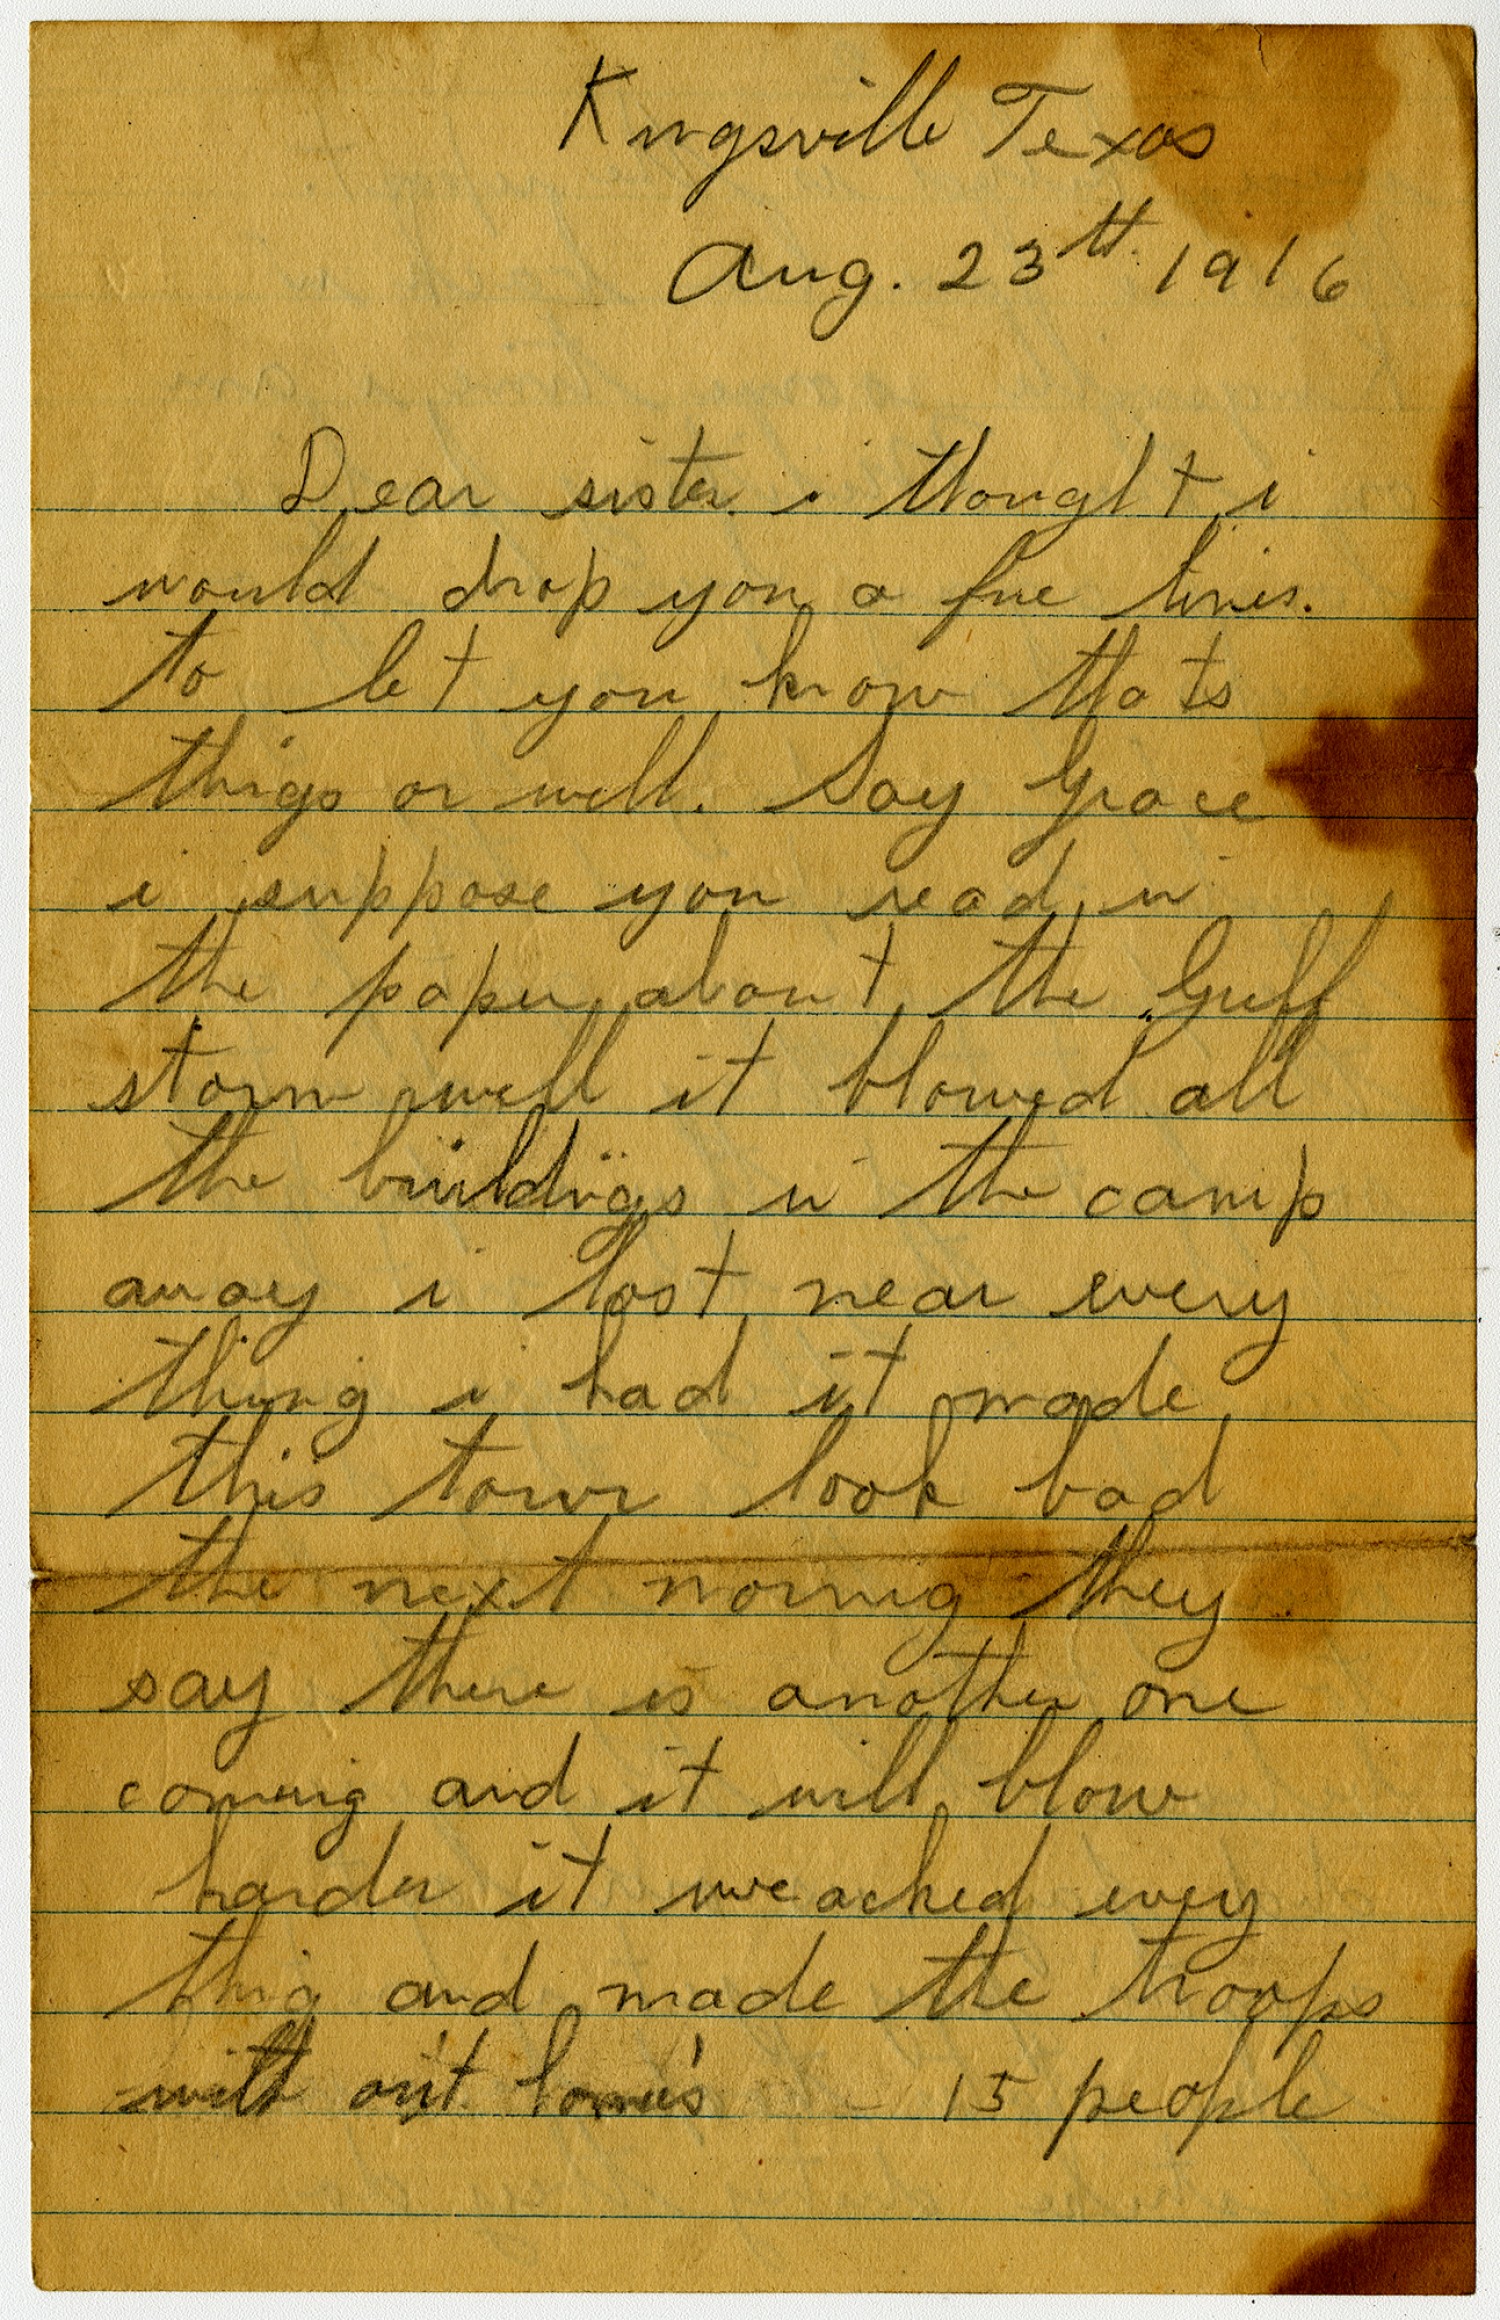 Kingsville Texas
Aug. 23th. 1916
Dear sister. i thought i
would drop you a fue lines.
to let you know thats
things or well. Say Grace
i suppose you read in
the paper about the Gulf
storm well it blowed all
the buildings in the camp
away i lost near every
thing i had it made
this town look bad
the next morning they
say there is another one
coming and it will blow
harder it wreacked every
thing and made the troops
with out homes 15 people